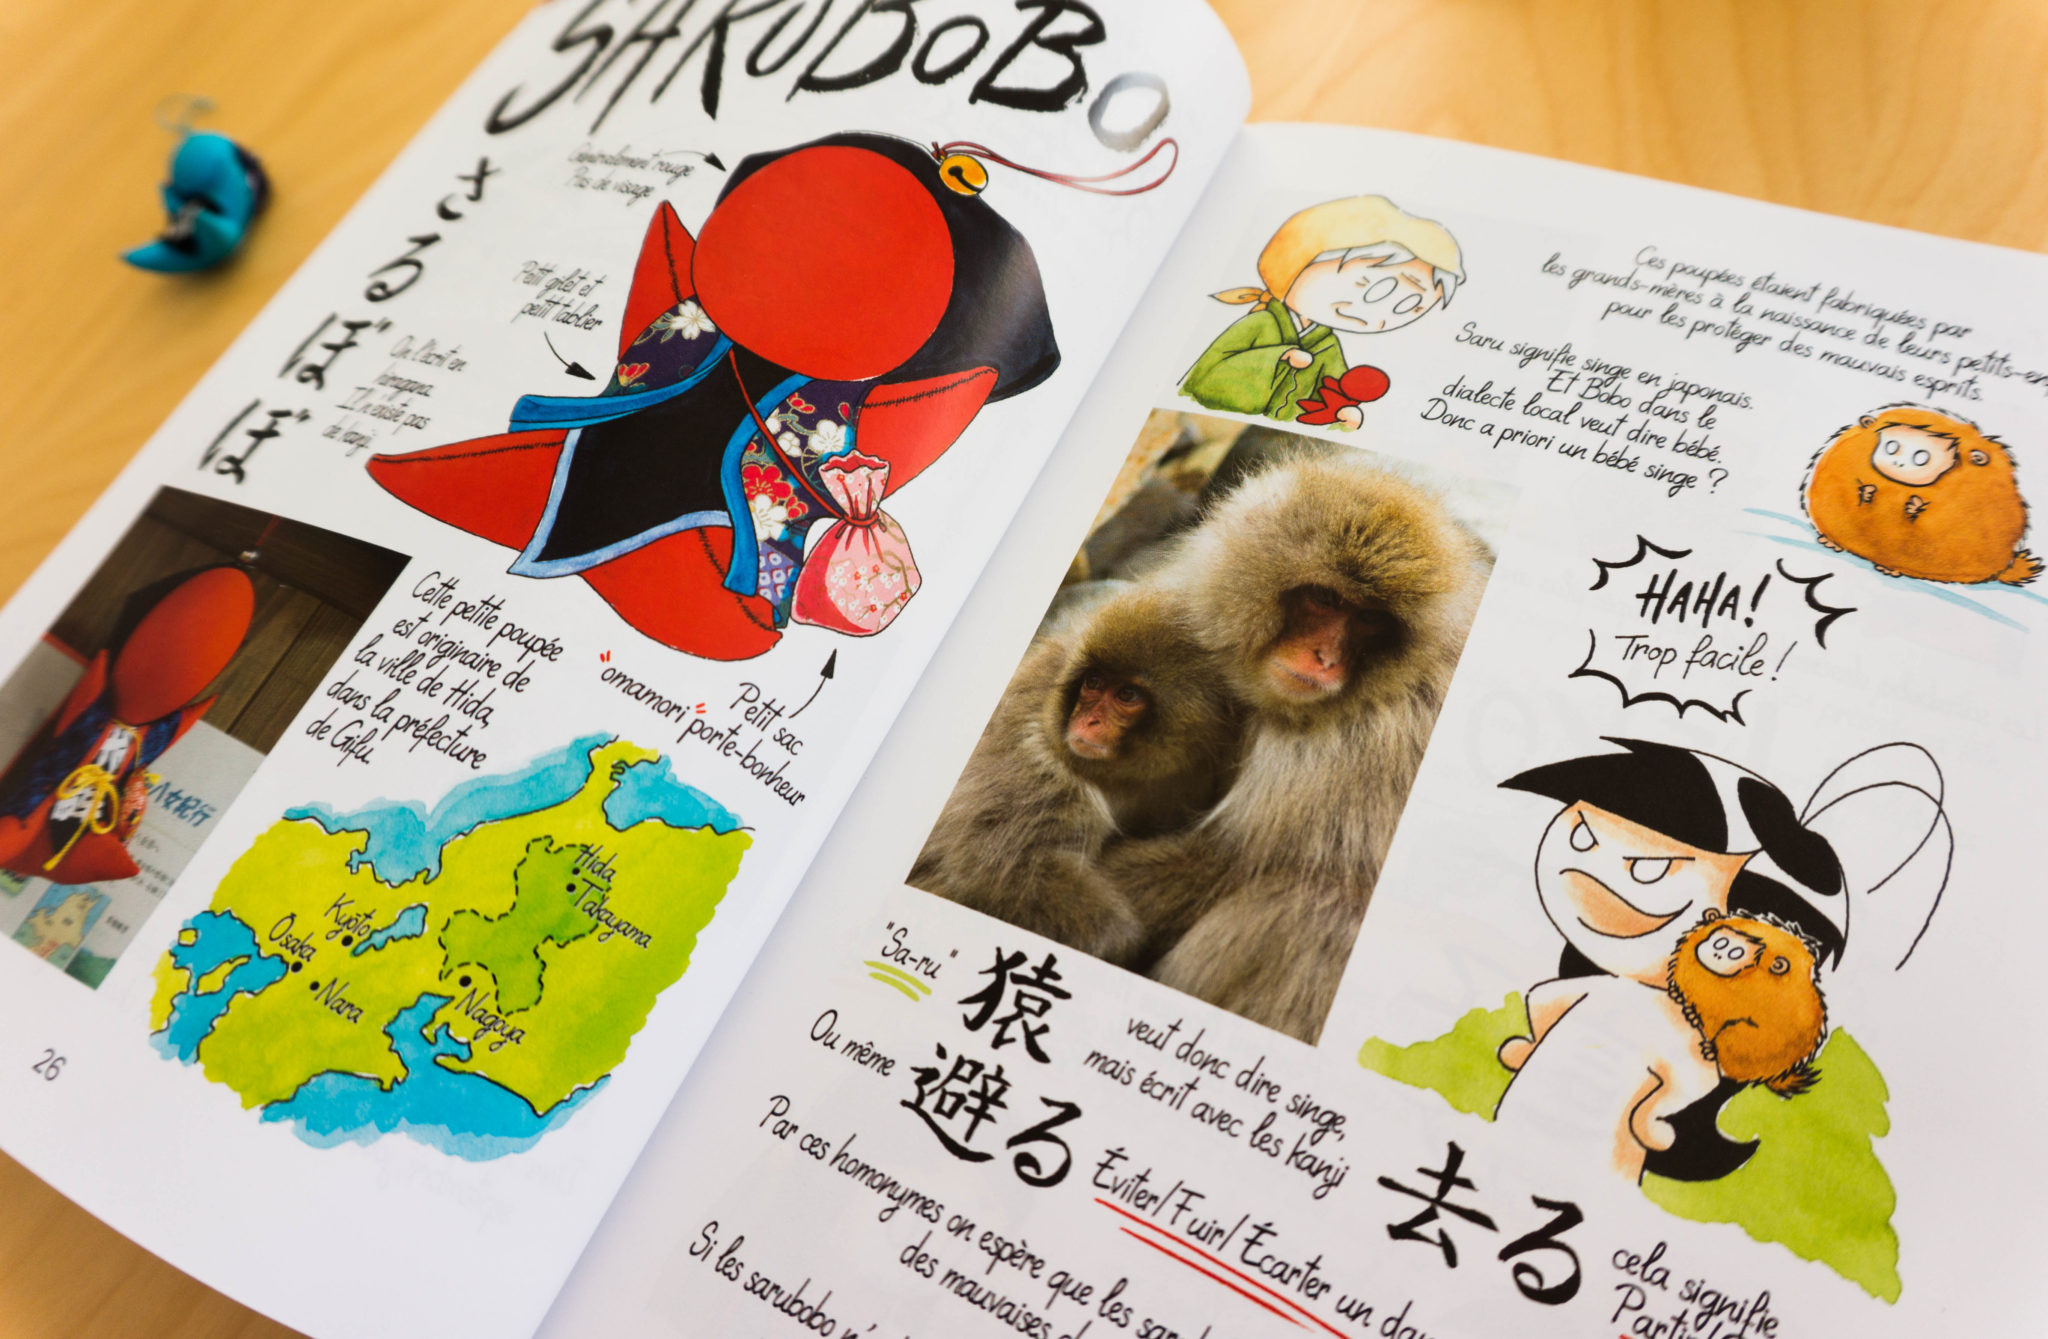 SARUBOBO
さるぼぼ
Généralement rouge
Pas de visage
Petit gilet et
petit tablier
On l'écrit en
hiragana
Il n'existe pas
de kanji
Cette petite poupée
est originaire de
la ville de Hida,
dans la préfecture
de Gifu.
Petit sac
"omamori" porte-bonheur
八女紀行
Hida
Takayama
Kyōto
Osaka
Nara
Nagoya
26
Ces poupées étaient fabriquées par
les grands-mères à la naissance de leurs petits-en
pour les protéger des mauvais esprits.
Saru signifie singe en japonais.
Et Bobo dans le
dialecte local veut dire bébé.
Donc a priori un bébé singe ?
HAHA!
Trop facile!
"Sa-ru" 猿 veut donc dire singe,
mais écrit avec les kanji 去る cela signifie
Ou même 避る Éviter/Fuir/Écarter un
Par ces homonymes on espère que les
des mauvaises
Si les sarubobo